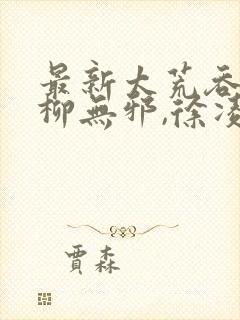 最新大荒吞
柳無邪,徐凌
賈森